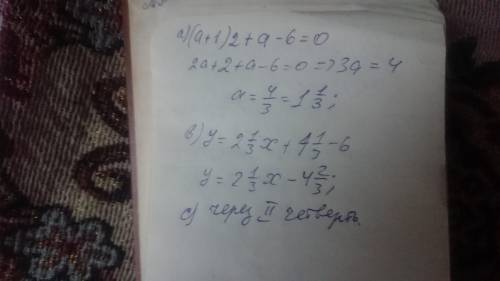 а) (a+1)2+a-6=0
2a+2+a-6=0 => 3a=4
a=4/3=1 1/3;
в) y=2 1/3 x+1 1/3-6
y=2 1/3 x-4 2/3;
с) через II четверть.